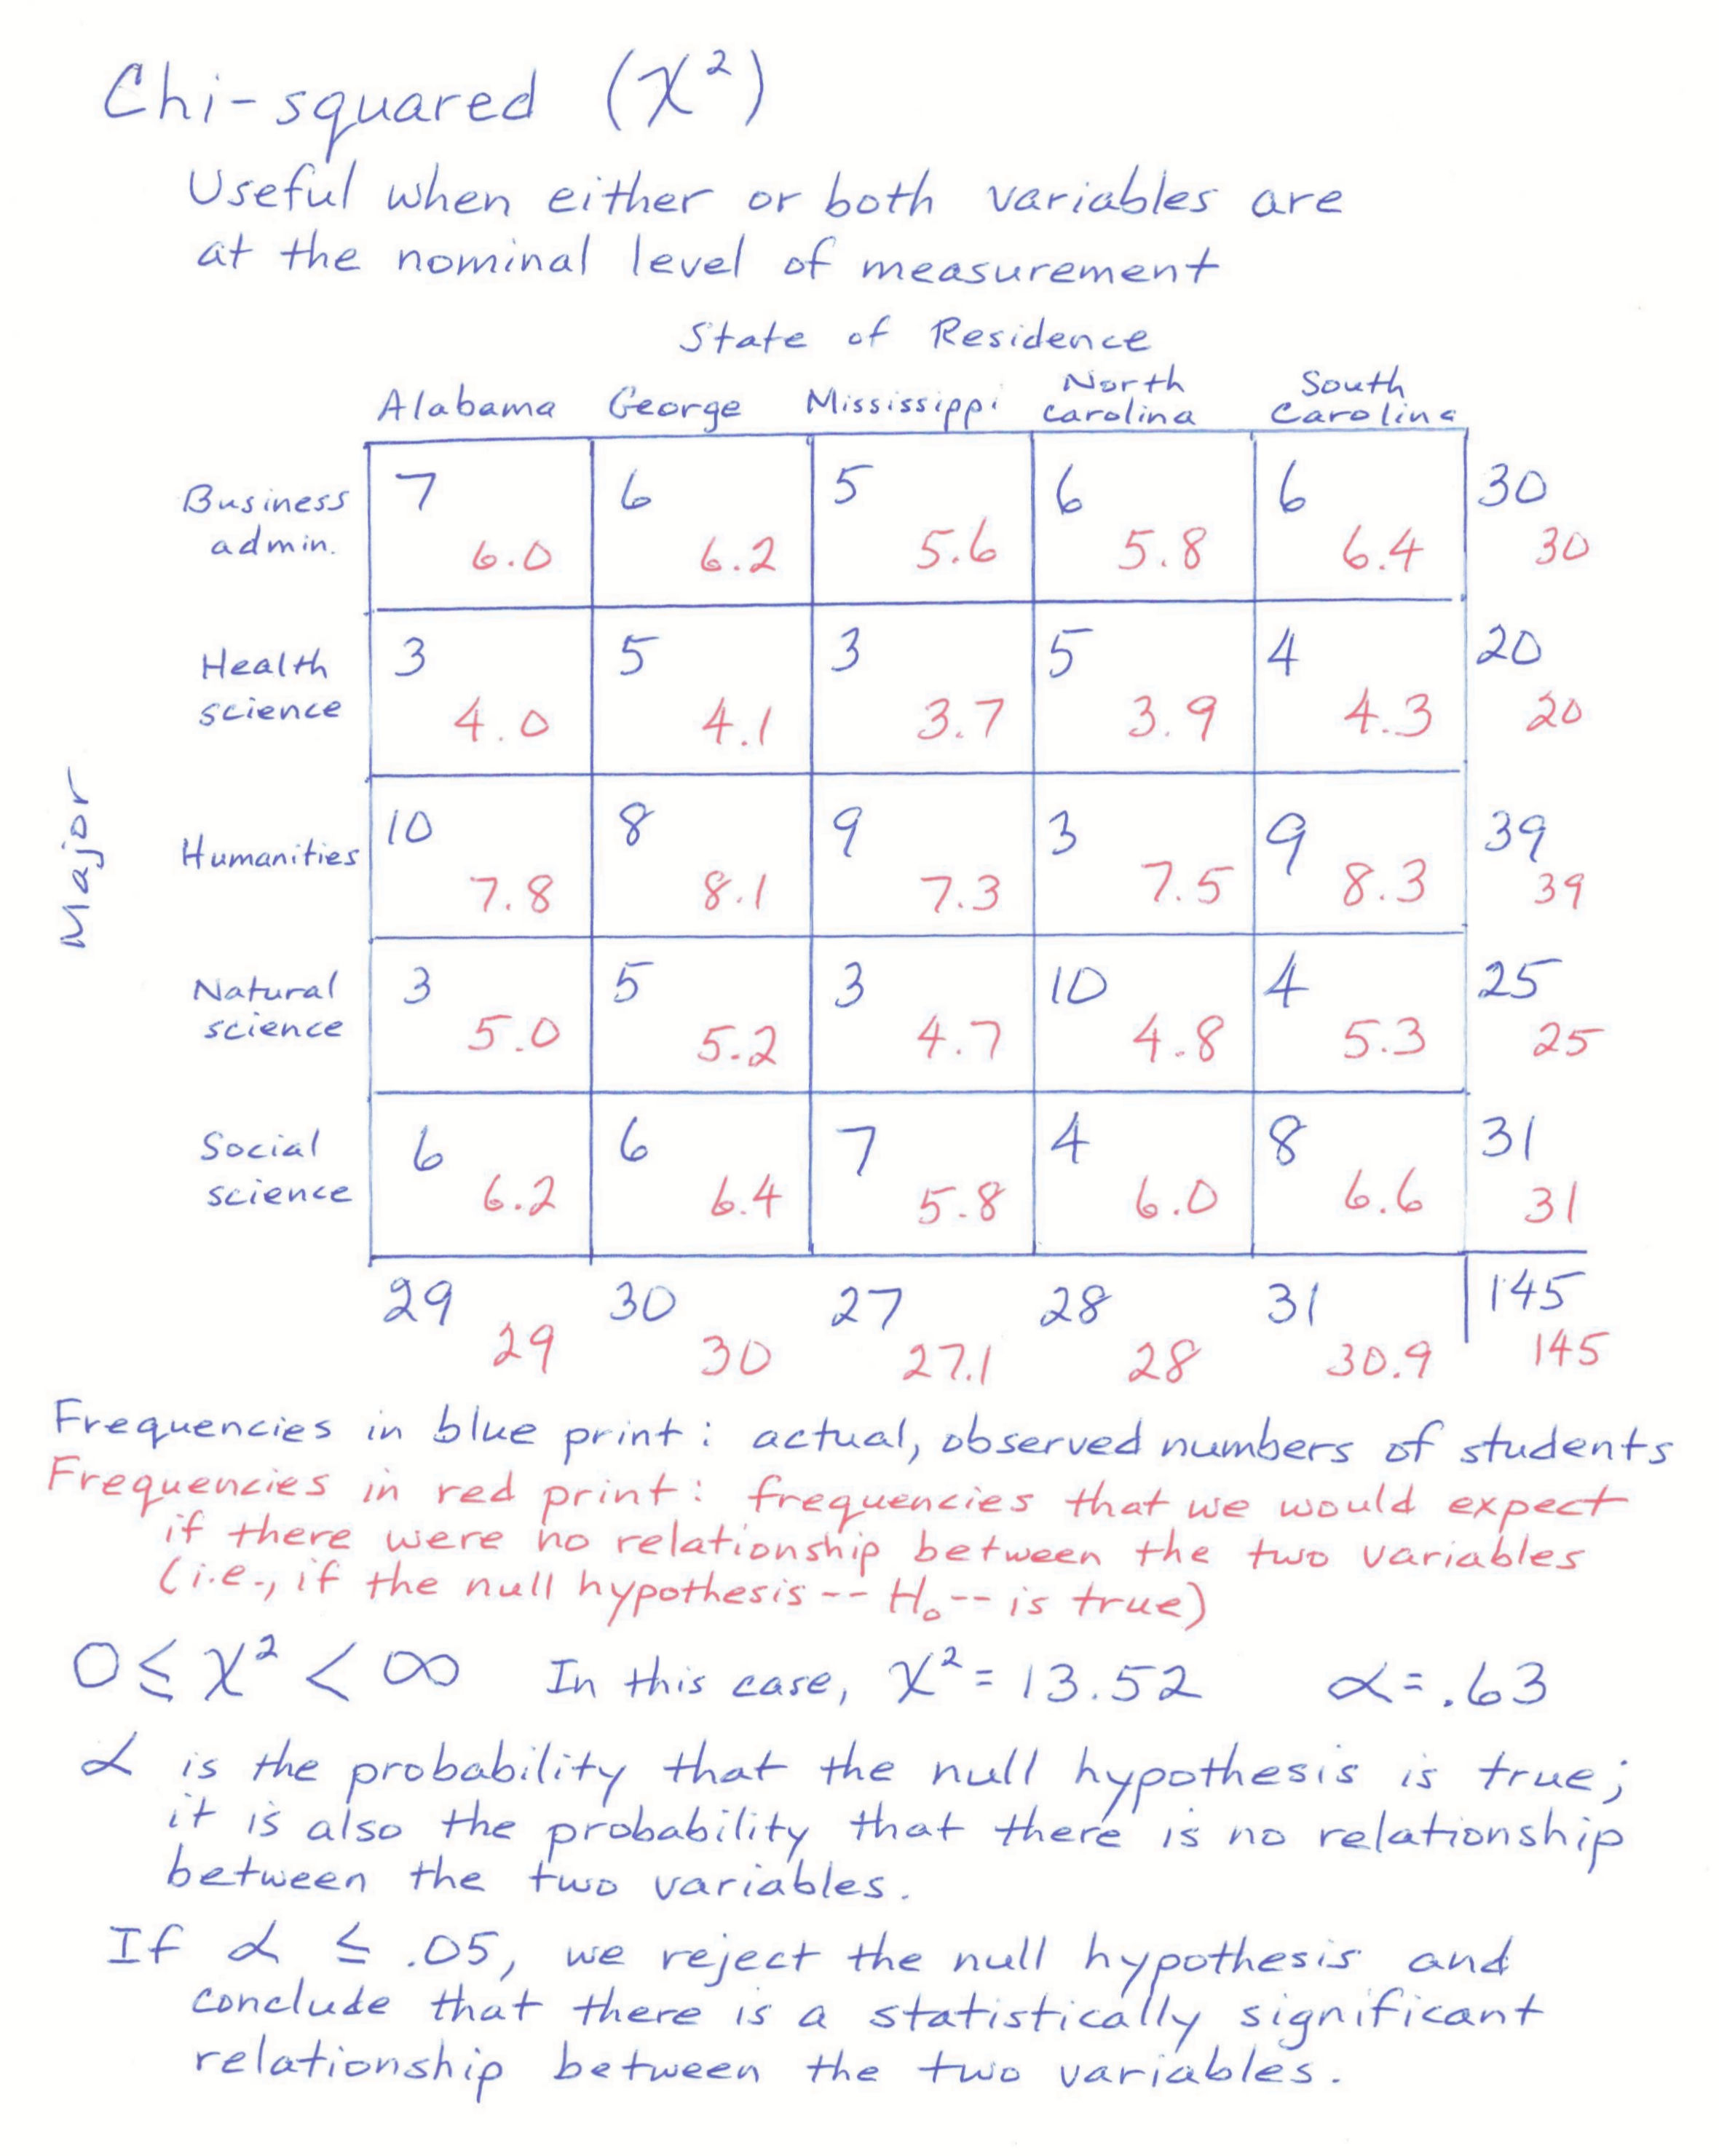 Chi-squared (χ²)
Useful when either or both variables are
at the nominal level of measurement
State of Residence
Alabama George Mississippi North Carolina South Carolina
Major
Business admin. 7 6.0 6 6.2 5 5.6 6 5.8 6 6.4 30 30
Health science 3 4.0 5 4.1 3 3.7 5 3.9 4 4.3 20 20
Humanities 10 7.8 8 8.1 9 7.3 3 7.5 9 8.3 39 39
Natural science 3 5.0 5 5.2 3 4.7 10 4.8 4 5.3 25 25
Social science 6 6.2 6 6.4 7 5.8 4 6.0 8 6.6 31 31
29 29 30 30 27 27.1 28 28 31 30.9 145 145
Frequencies in blue print: actual, observed numbers of students
Frequencies in red print: frequencies that we would expect
if there were no relationship between the two variables
(i.e., if the null hypothesis -- H₀ -- is true)
0 ≤ χ² < ∞ In this case, χ² = 13.52 α = .63
α is the probability that the null hypothesis is true;
it is also the probability that there is no relationship
between the two variables.
If α ≤ .05, we reject the null hypothesis and
conclude that there is a statistically significant
relationship between the two variables.